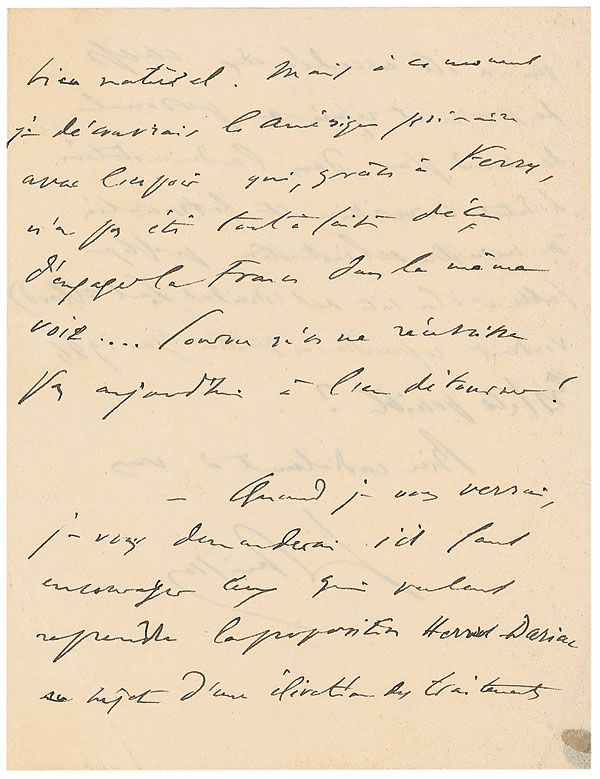 bien naturel. Mais à ce moment
je découvrais l'Amérique primaire
avec l'espoir qui, grâce à Ferry,
n'a pas été tout à fait déçu
d'engager la France dans la même
voie .... Pourvu qu'on ne réussisse
pas aujourd'hui à l'en détourner !
— Quand je vous verrai,
je vous demanderai s'il faut
encourager ceux qui veulent
reprendre la proposition Herriot-Dariac
au sujet d'une élévation des traitements